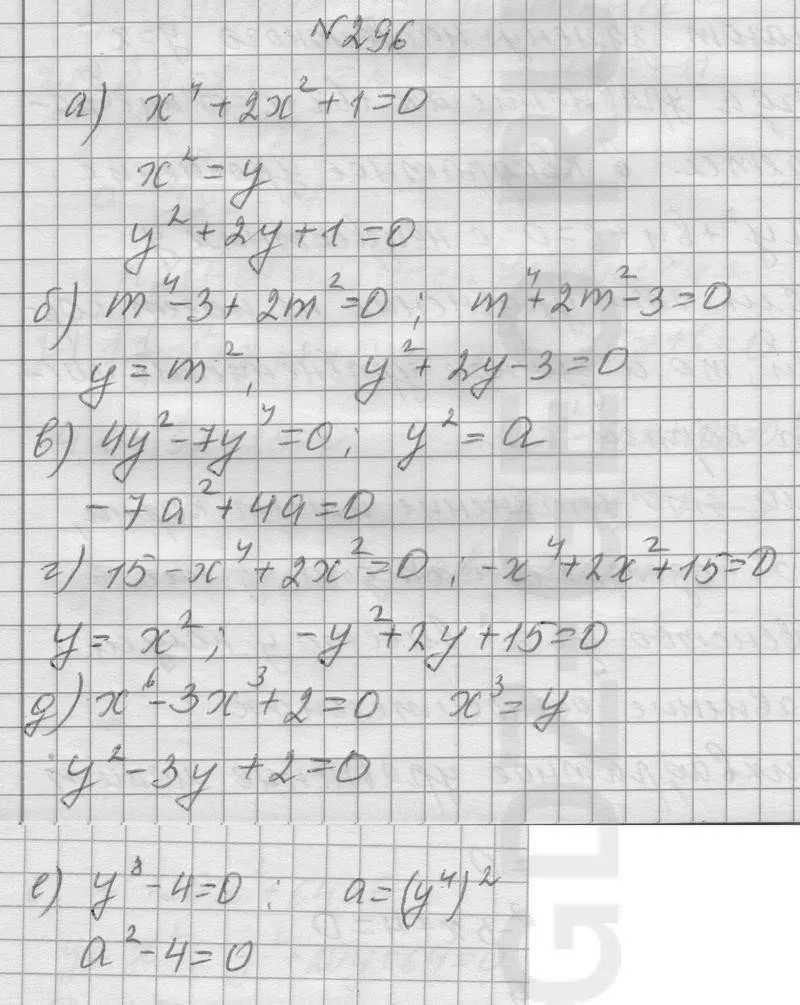 №296
а) x⁴ + 2x² + 1 = 0
x² = y
y² + 2y + 1 = 0
б) m⁴ - 3 + 2m² = 0; m⁴ + 2m² - 3 = 0
y = m²; y² + 2y - 3 = 0
в) 4y² - 7y⁴ = 0; y² = a
- 7a² + 4a = 0
г) 15 - x⁴ + 2x² = 0; -x⁴ + 2x² + 15 = 0
y = x²; -y² + 2y + 15 = 0
д) x⁶ - 3x³ + 2 = 0 x³ = y
y² - 3y + 2 = 0
е) y⁸ - 4 = 0; a = (y⁴)²
a² - 4 = 0